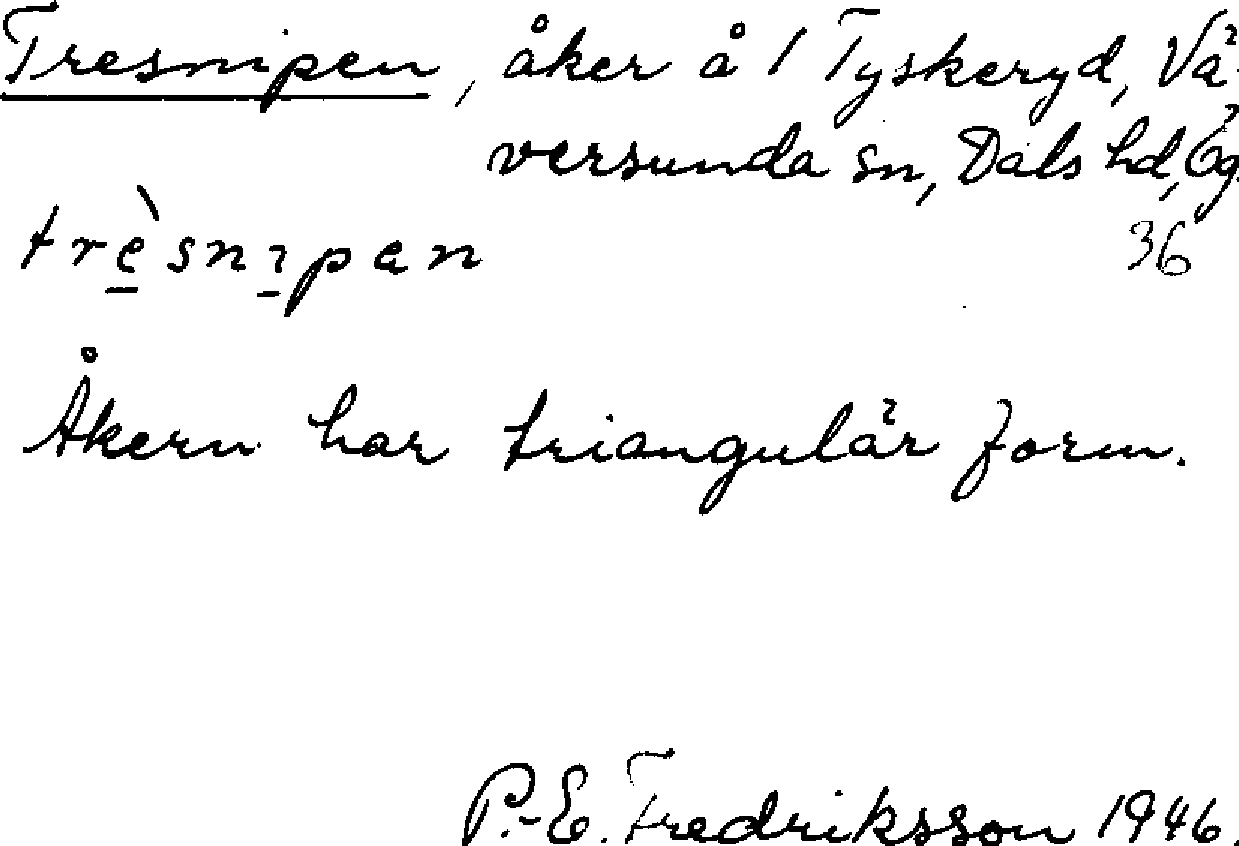 Tresnipen, åker å 1 Tyskeryd, Vä-
versunda sn, Dals hd, Ög.
36
trè̱snı̱pen
Åkern har triangulär form.
P.-E. Fredriksson 1946.